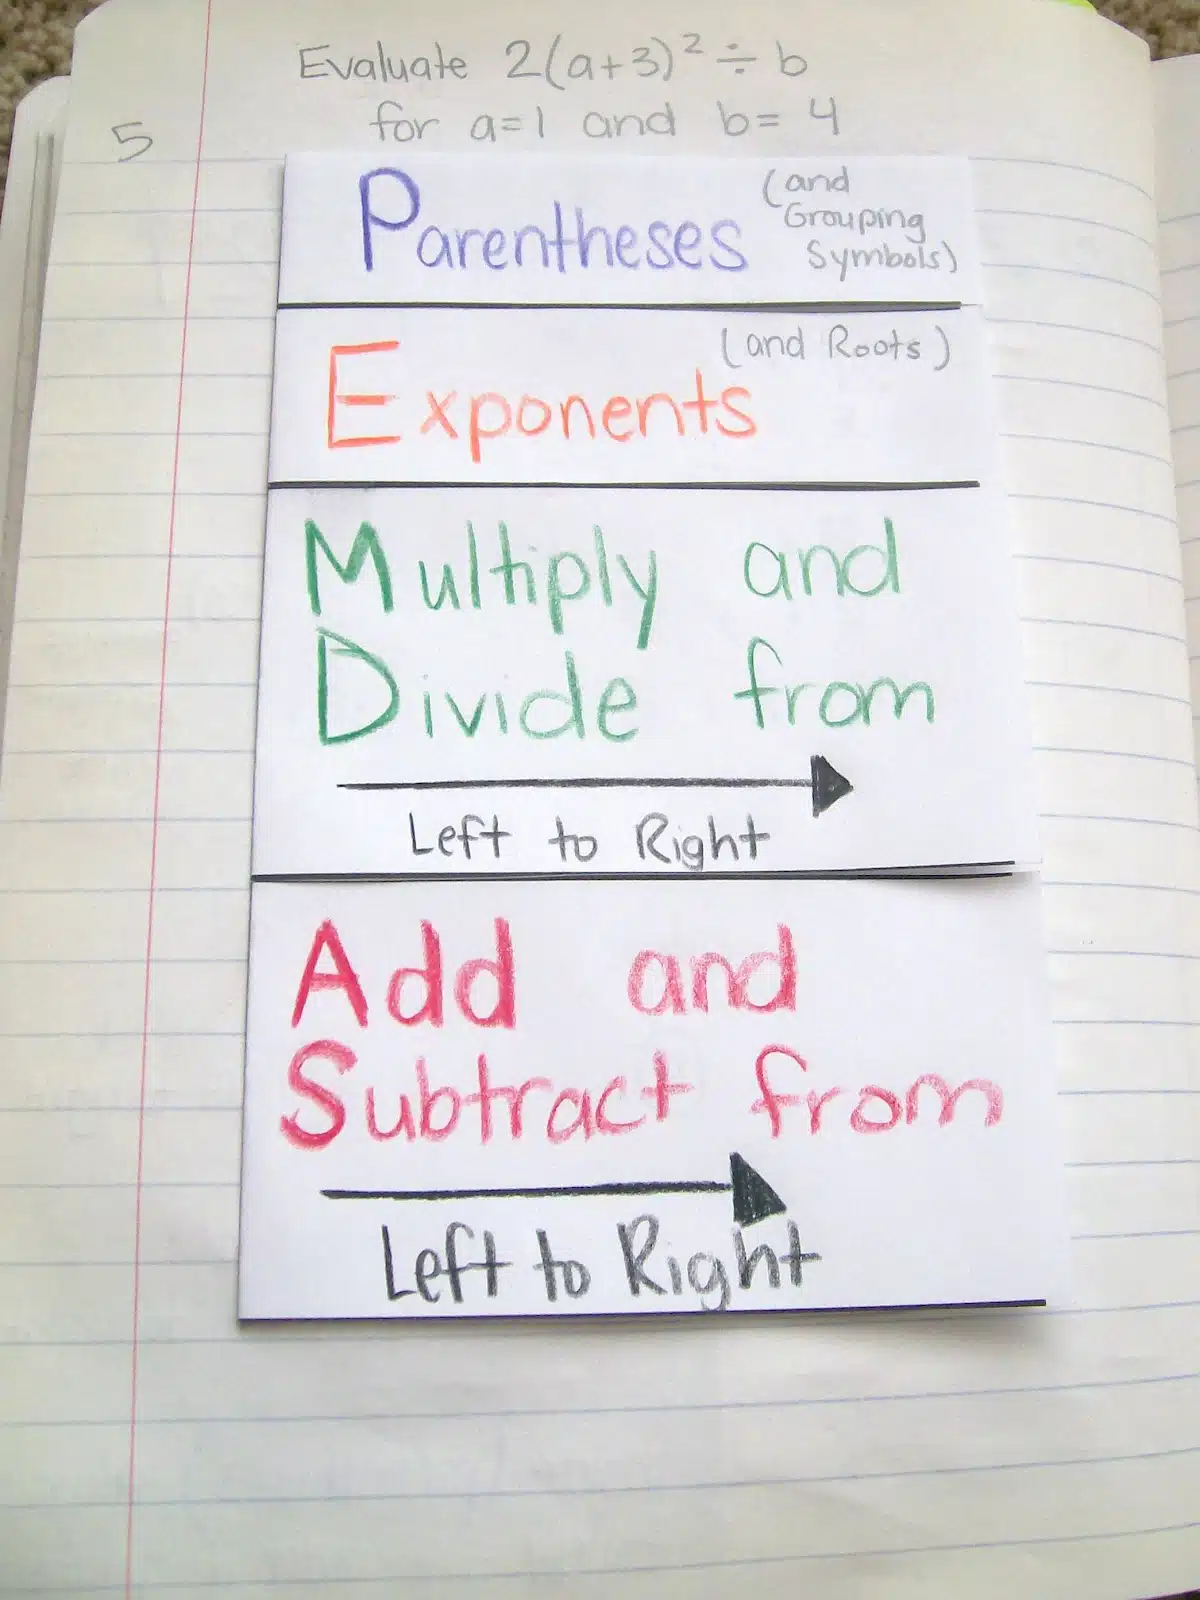 Evaluate 2(a+3)² ÷ b
for a=1 and b= 4
5
Parentheses
(and
Grouping
Symbols)
(and Roots)
Exponents
Multiply and
Divide from
Left to Right
Add and
Subtract from
Left to Right